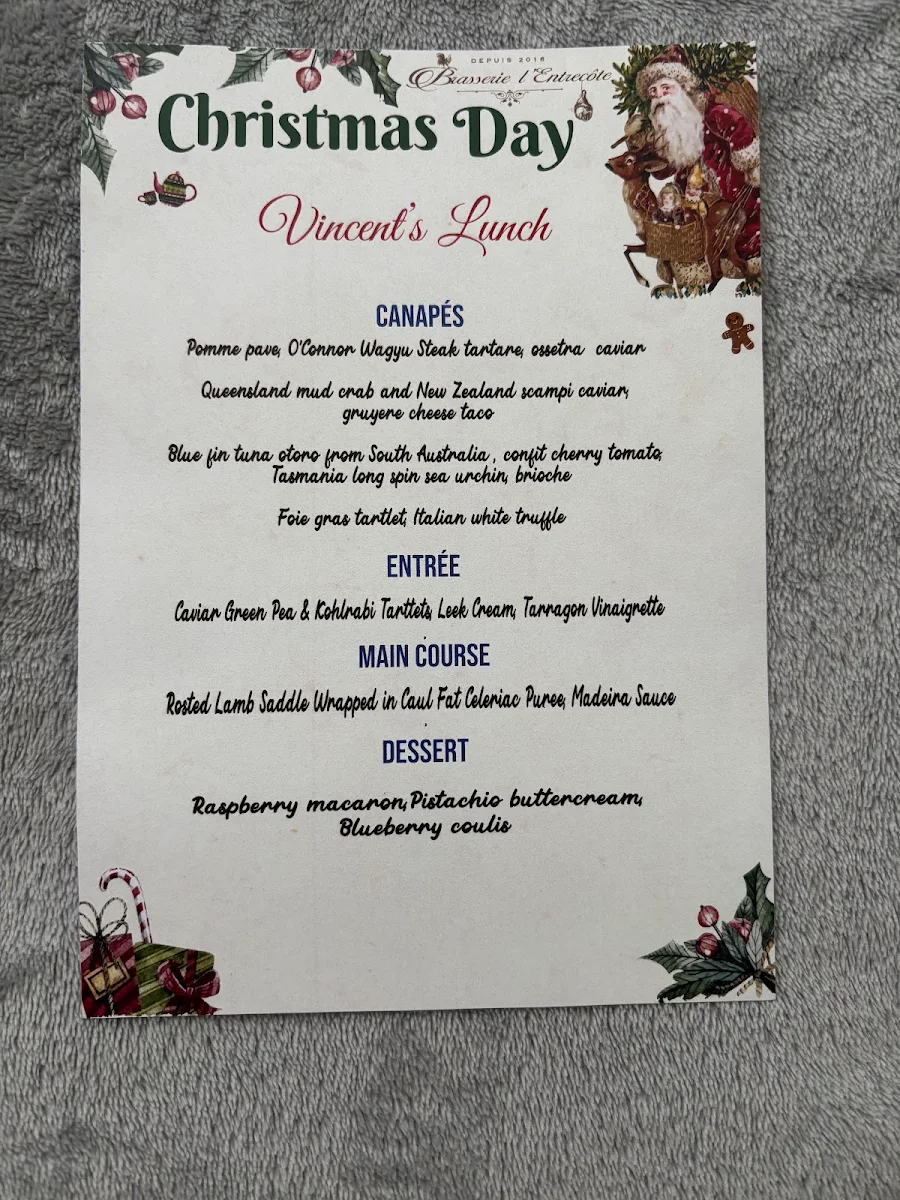 DEPUIS 2016
Brasserie l'Entrecôte
Christmas Day
Vincent's Lunch
CANAPÉS
Pomme pave, O'Connor Wagyu Steak tartare, ossetra caviar
Queensland mud crab and New Zealand scampi caviar,
gruyere cheese taco
Blue fin tuna otoro from South Australia , confit cherry tomato,
Tasmania long spin sea urchin, brioche
Foie gras tartlet, Italian white truffle
ENTRÉE
Caviar Green Pea & Kohlrabi Tarttets, Leek Cream, Tarragon Vinaigrette
MAIN COURSE
Rosted Lamb Saddle Wrapped in Caul Fat Celeriac Puree, Madeira Sauce
DESSERT
Raspberry macaron, Pistachio buttercream,
Blueberry coulis